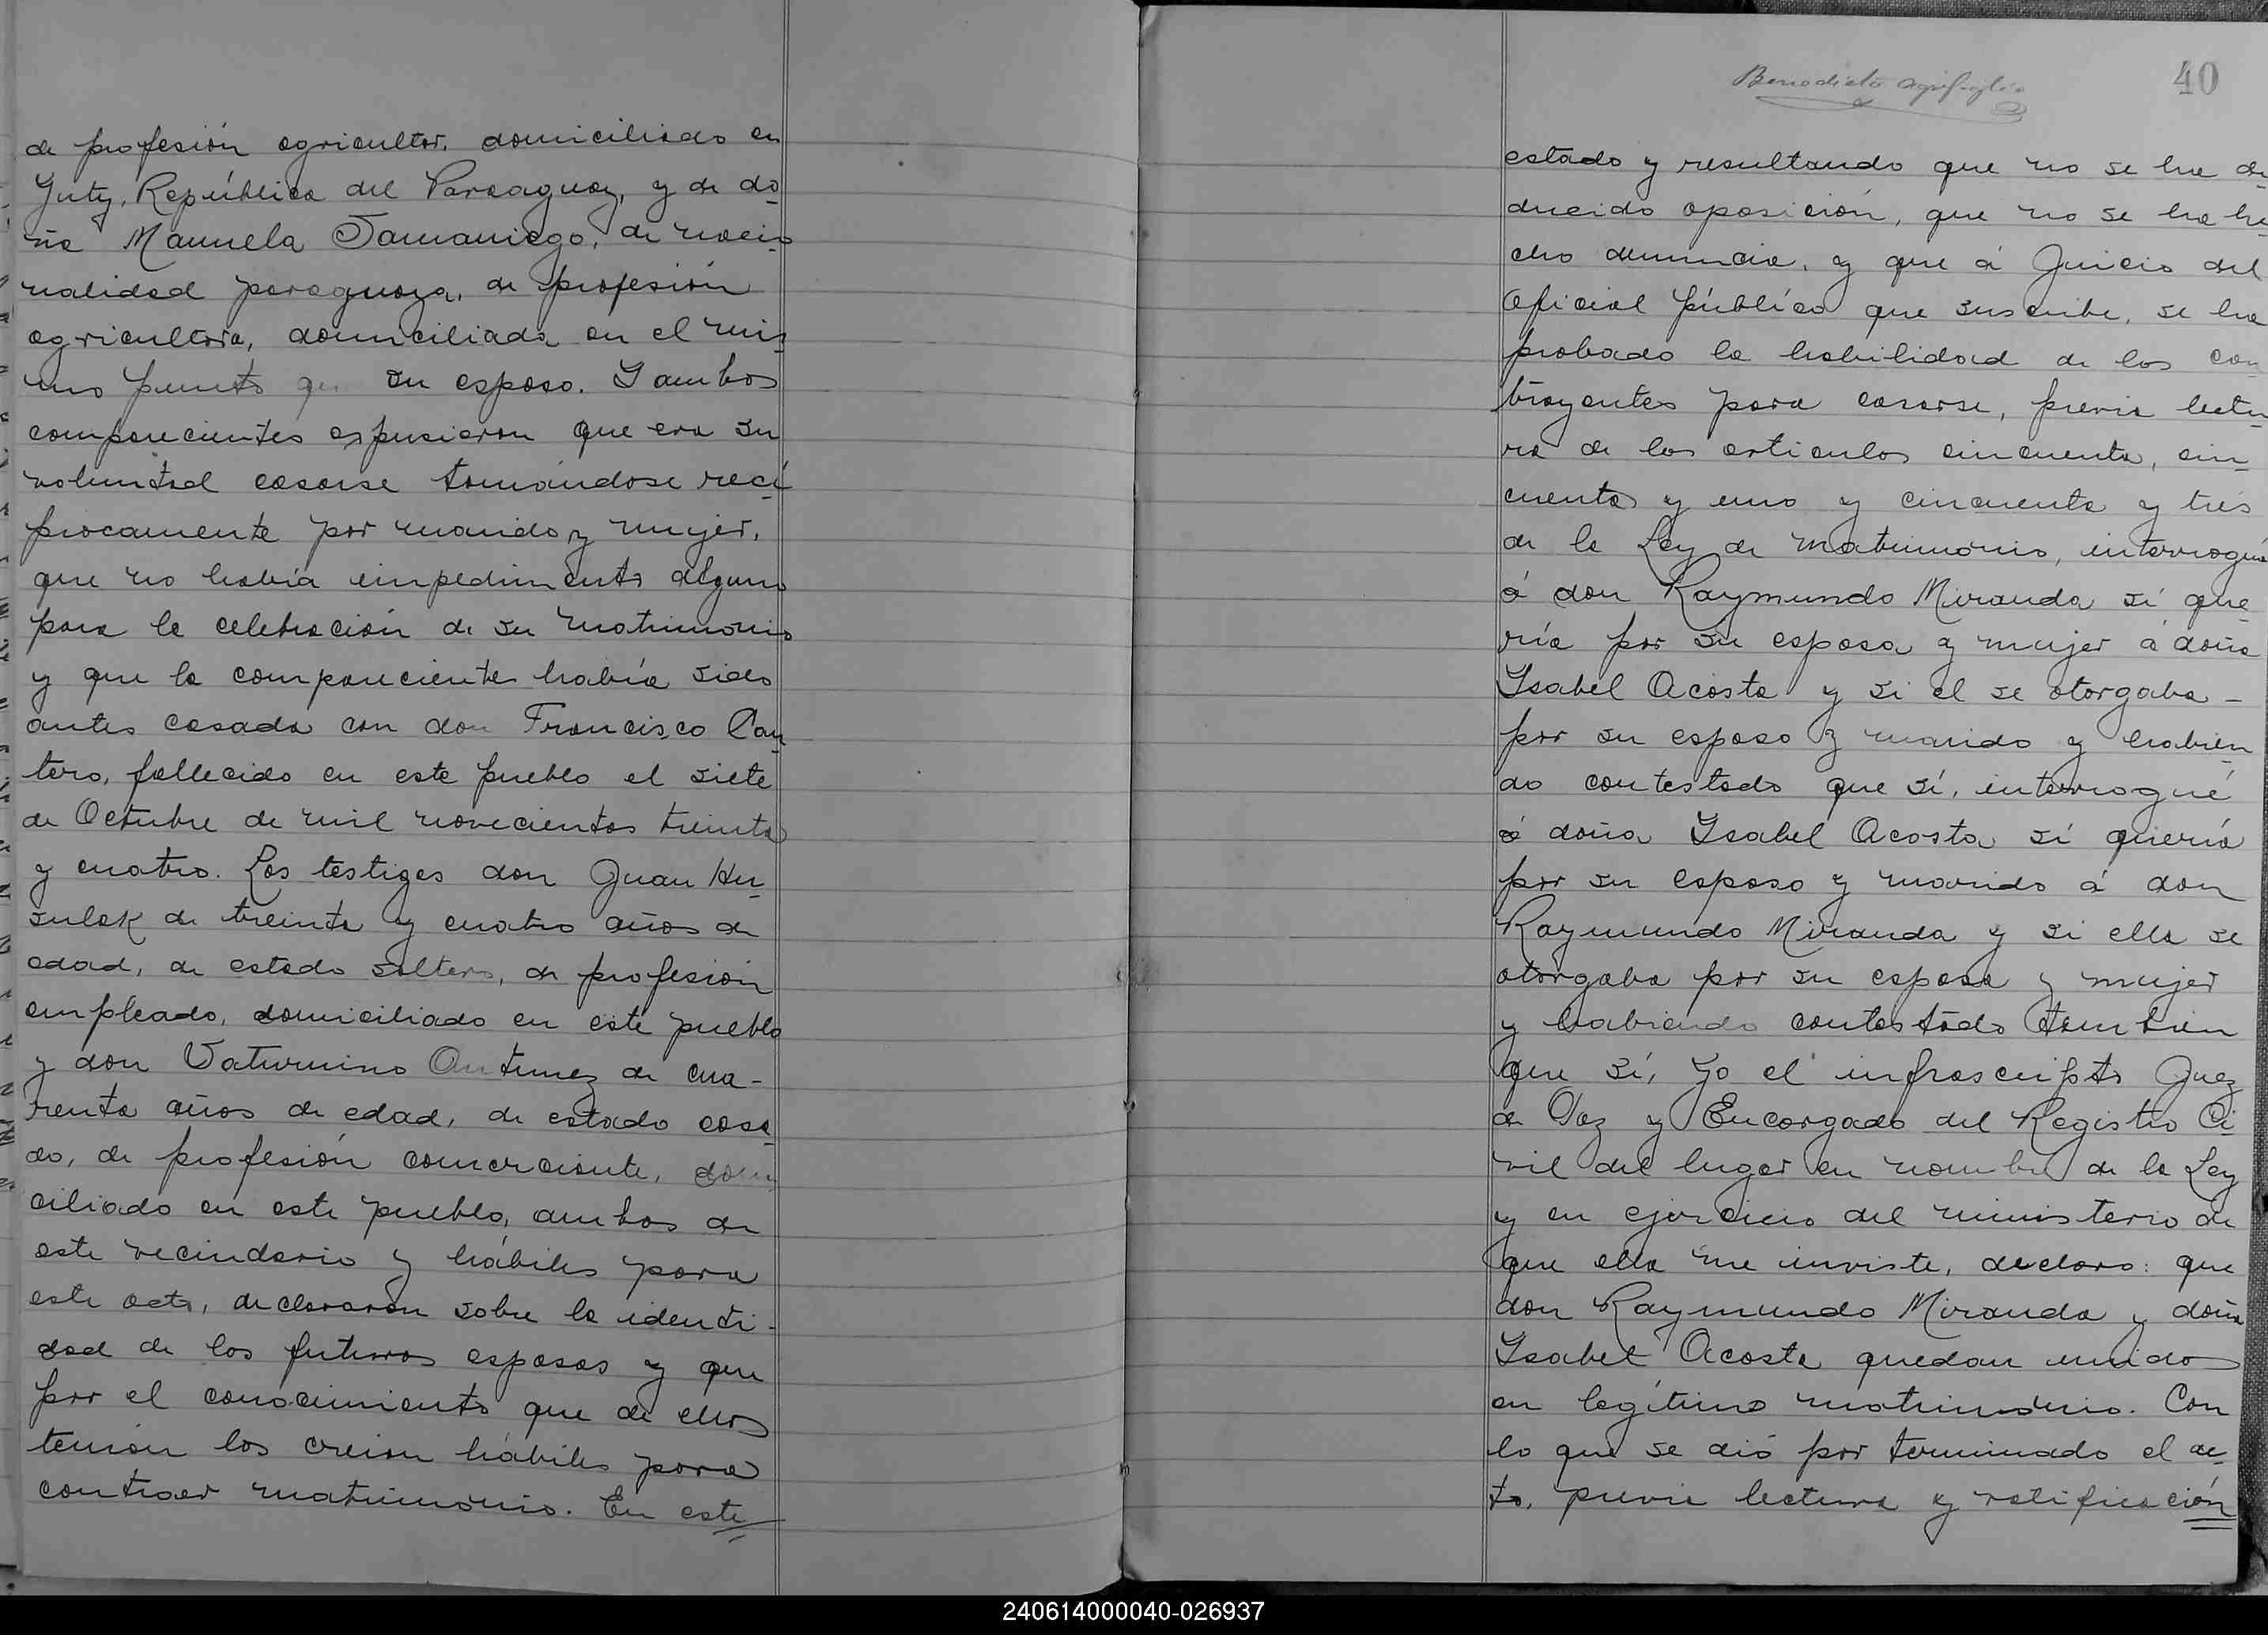 de profesión agricultor, domiciliado en
Yuty, República del Paraaguay, y de do-
ña Manuela Samaniego, de nacio-
nalidad paraguaya, de profesión
agricultora, domiciliada en el mis-
mo punto que su esposo. Y ambos
comparecientes espusieron que era su
voluntad casarse tomándose recí-
procamente por marido y mujer,
que no había impedimento alguno
para la celebración de su matrimonio
y que la compareciente había sido
antes casada con don Francisco Can-
tero, fallecido en este pueblo el siete
de Octubre de mil novecientos treinta
y cuatro. Los testigos don Juan Hu-
sulak de treinta y cuatro años de
edad, de estado soltero, de profesión
empleado, domiciliado en este pueblo
y don Saturnino Antunez de cua-
renta años de edad, de estado casa-
do, de profesión comerciante, domi-
ciliado en este pueblo, ambos de
este vecindario y hábiles para
este acto, declararon sobre la identi-
dad de los futuros esposos y que
por el conocimiento que de ellos
tenían los creían hábiles para
contraer matrimonio. En este
Benedicto
40
estado y resultando que no se ha de-
ducido oposición, que no se ha he-
cho denuncia, y que á Juicio del
Oficial Público que suscribe, se ha
probado la habilidad de los con-
trayentes para casarse, previa lectu-
ra de los artículos cincuenta, cin-
cuenta y uno y cincuenta y tres
de la Ley de Matrimonio, interrogué
á don Raymundo Miranda sí que-
ría por su esposa y mujer á doña
Ysabel Acosta y si el se otorgaba -
por su esposo y marido y habien-
do contestado que sí, interrogué
á doña Ysabel Acosta sí quería
por su esposo y marido á don
Raymundo Miranda y si ella se
otorgaba por su esposa y mujer
y habiendo contestado también
que sí, Yo el infrascripto Juez
de Paz y Encargado del Registro Ci-
vil del lugar en nombre de la Ley
y en ejercicio del ministerio de
que ella me inviste, declaro: que
don Raymundo Miranda y doña
Ysabel Acosta quedan unidos
en legítimo matrimonio. Con
lo que se dió por terminado el ac-
to, previa lectura y ratificación
240614000040-026937